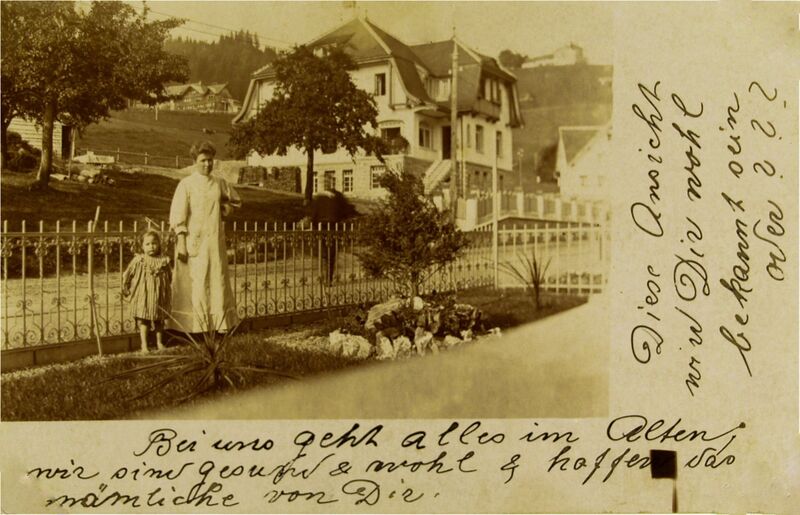 Diese Ansicht
wird Dir wohl
bekannt sein
oder ? ? ?
Bei uns geht alles im Alten,
wir sind gesund & wohl & hoffen das
nämliche von Dir.